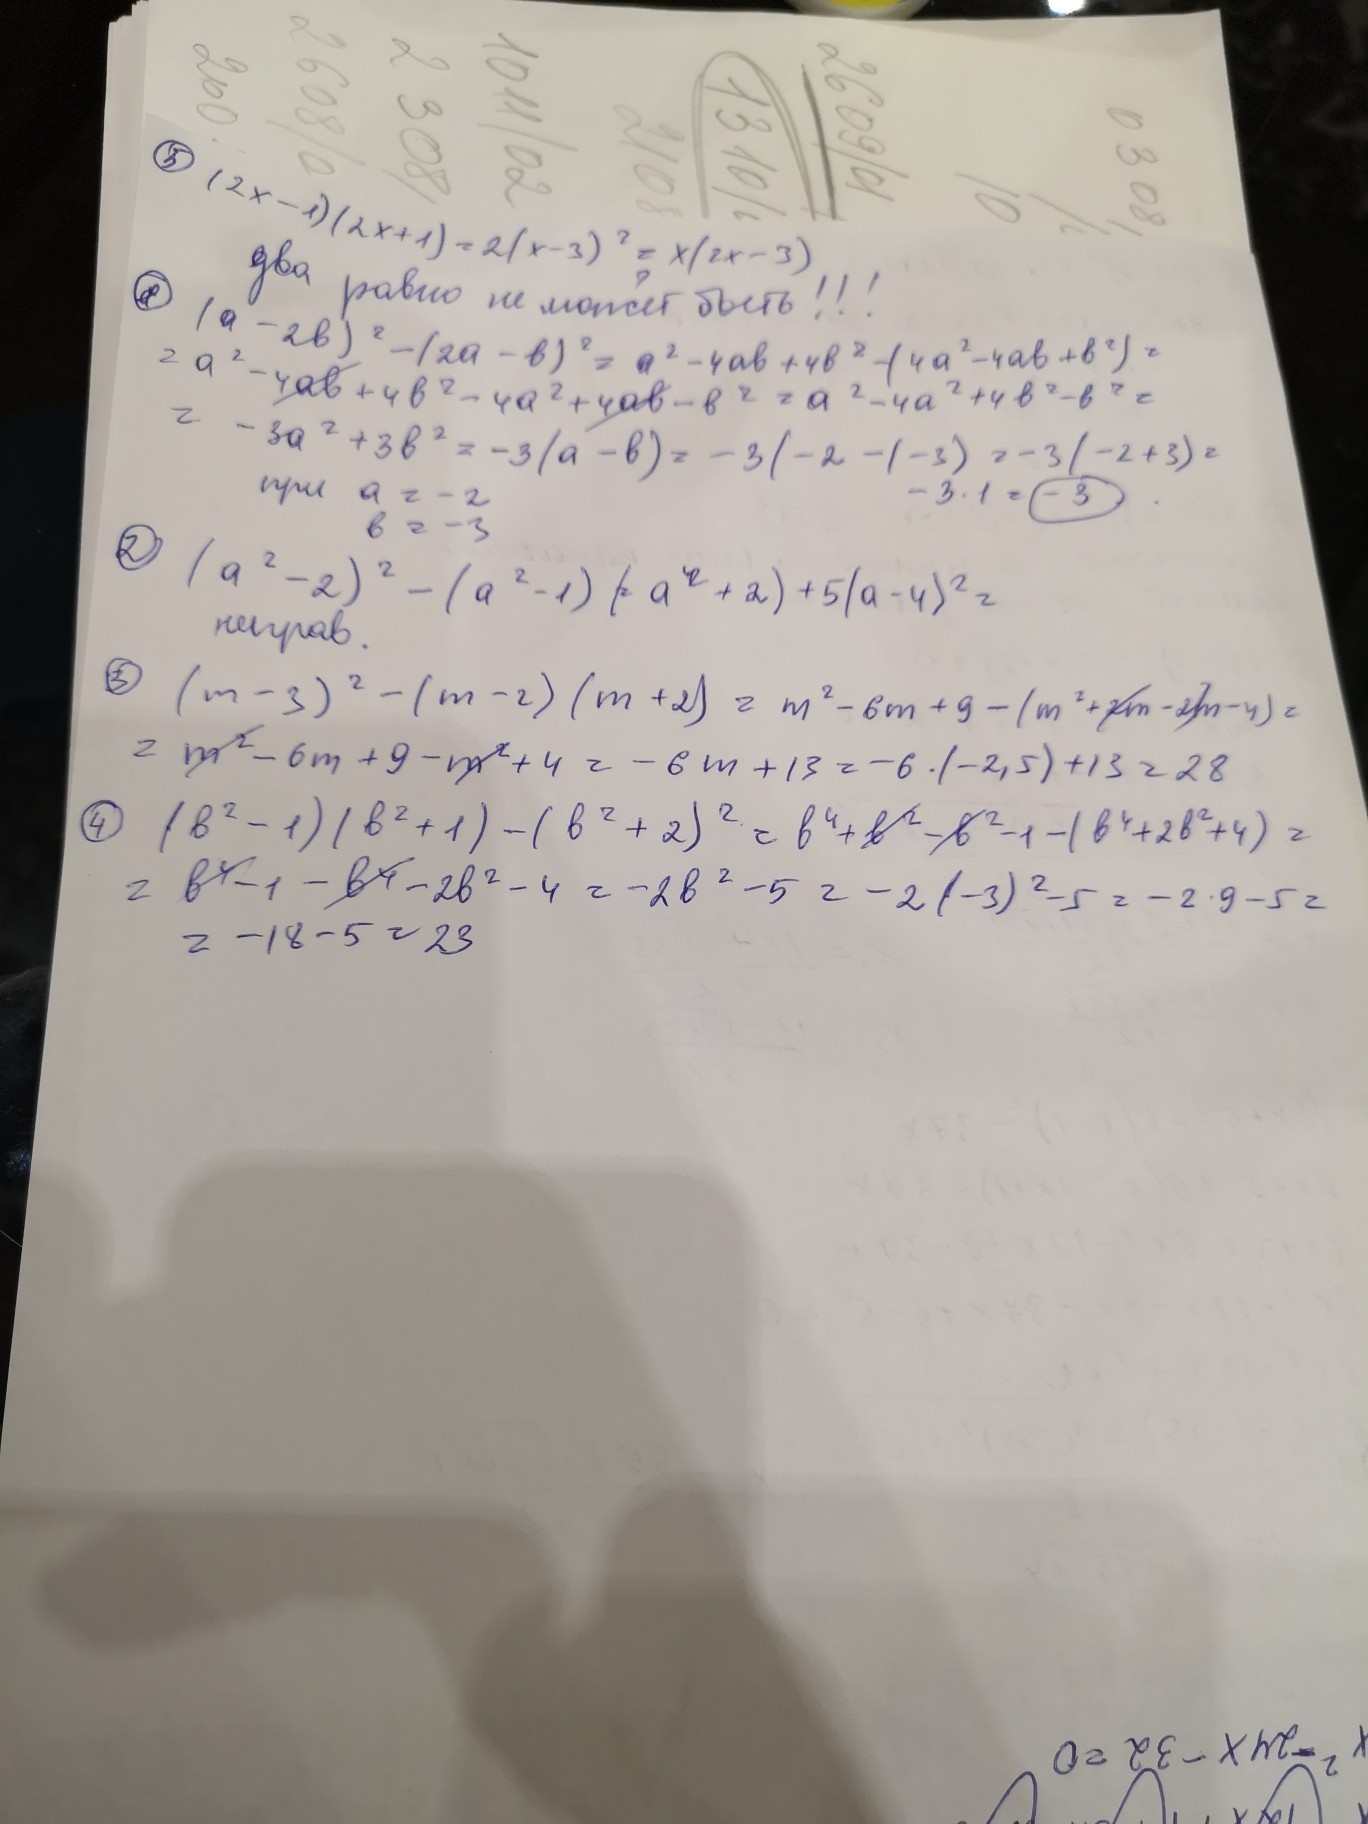 200.
2608/a
2 308/
1011/02
2108
1310/1
2609/01
10
/1
0308/
⑤ (2x-1)(2x+1) = 2(x-3)² = x(2x-3)
?
два равно не может быть!!!
① (a - 2b)² - (2a - b)² = a² - 4ab + 4b² - (4a² - 4ab + b²) =
= a² - 4ab + 4b² - 4a² + 4ab - b² = a² - 4a² + 4b² - b² =
= -3a² + 3b² = -3(a - b) = -3(-2 - (-3) = -3(-2+3) =
при a = -2
-3·1 = -3.
b = -3
② (a² - 2)² - (a² - 1)(a² + 2) + 5(a - 4)² =
неправ.
③ (m - 3)² - (m - 2)(m + 2) = m² - 6m + 9 - (m² + 2m - 2m - 4) =
= m² - 6m + 9 - m² + 4 = -6m + 13 = -6·(-2,5) + 13 = 28
④ (b² - 1)(b² + 1) - (b² + 2)² = b⁴ + b² - b² - 1 - (b⁴ + 2b² + 4) =
= b⁴ - 1 - b⁴ - 2b² - 4 = -2b² - 5 = -2(-3)² - 5 = -2·9 - 5 =
= -18 - 5 = 23
x² - 24x - 32 = 0